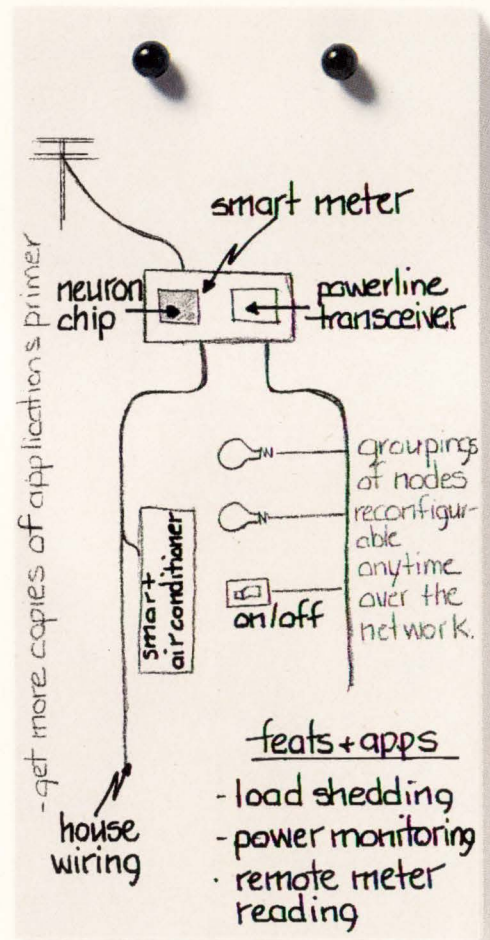 -get more copies of applications primer
smart meter
neuron
chip
powerline
transceiver
groupings
of nodes
reconfigur-
able
anytime
over the
network.
smart
airconditioner
on/off
house
wiring
feats + apps
- load shedding
- power monitoring
· remote meter
reading